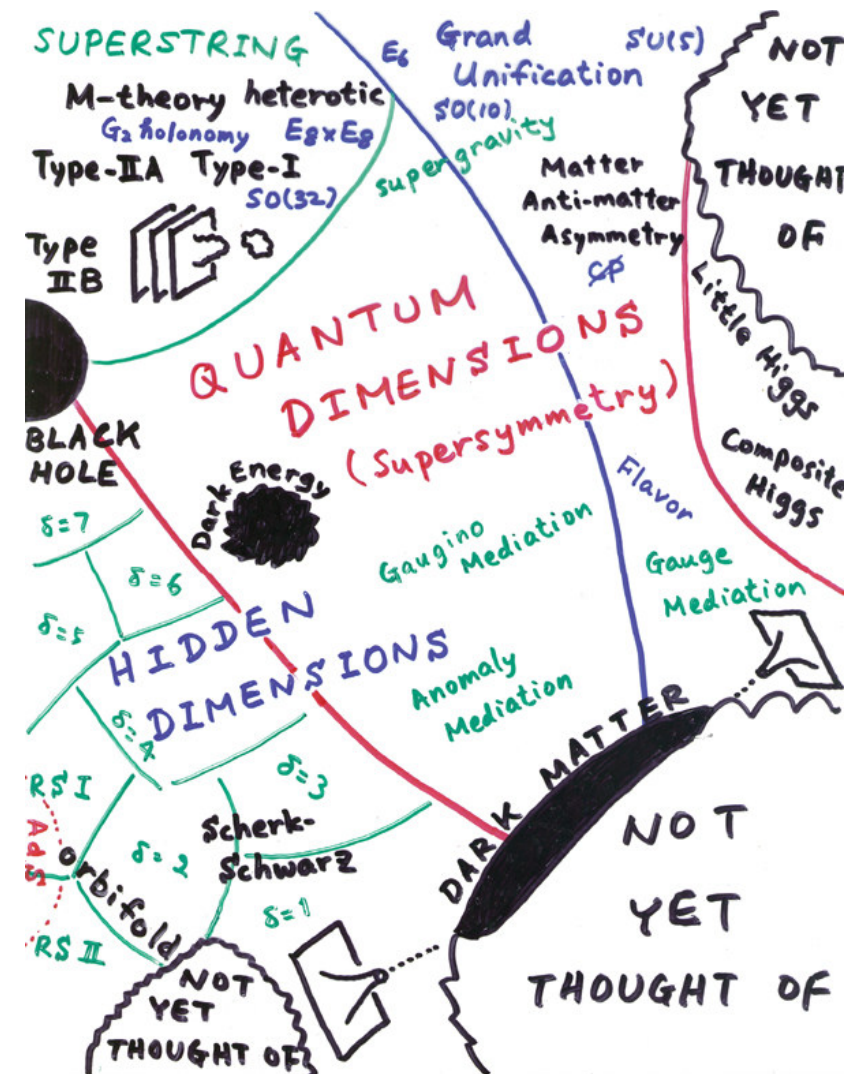 SUPERSTRING
M-theory heterotic
G2 holonomy E8×E8
Type-IIA Type-I
SO(32)
Type
IIB
E6 Grand
Unification
SU(5)
SO(10)
supergravity
Matter
Anti-matter
Asymmetry
CP
NOT
YET
THOUGHT
OF
Little Higgs
Composite
Higgs
QUANTUM
DIMENSIONS
(Supersymmetry)
BLACK
HOLE
Dark Energy
Flavor
Gaugino
Mediation
Gauge
Mediation
Anomaly
Mediation
HIDDEN
DIMENSIONS
δ=7
δ=6
δ=5
δ=4
δ=3
δ=2
δ=1
RS I
AdS
RS II
orbifold
Scherk-
Schwarz
DARK MATTER
NOT
YET
THOUGHT OF
NOT
YET
THOUGHT OF